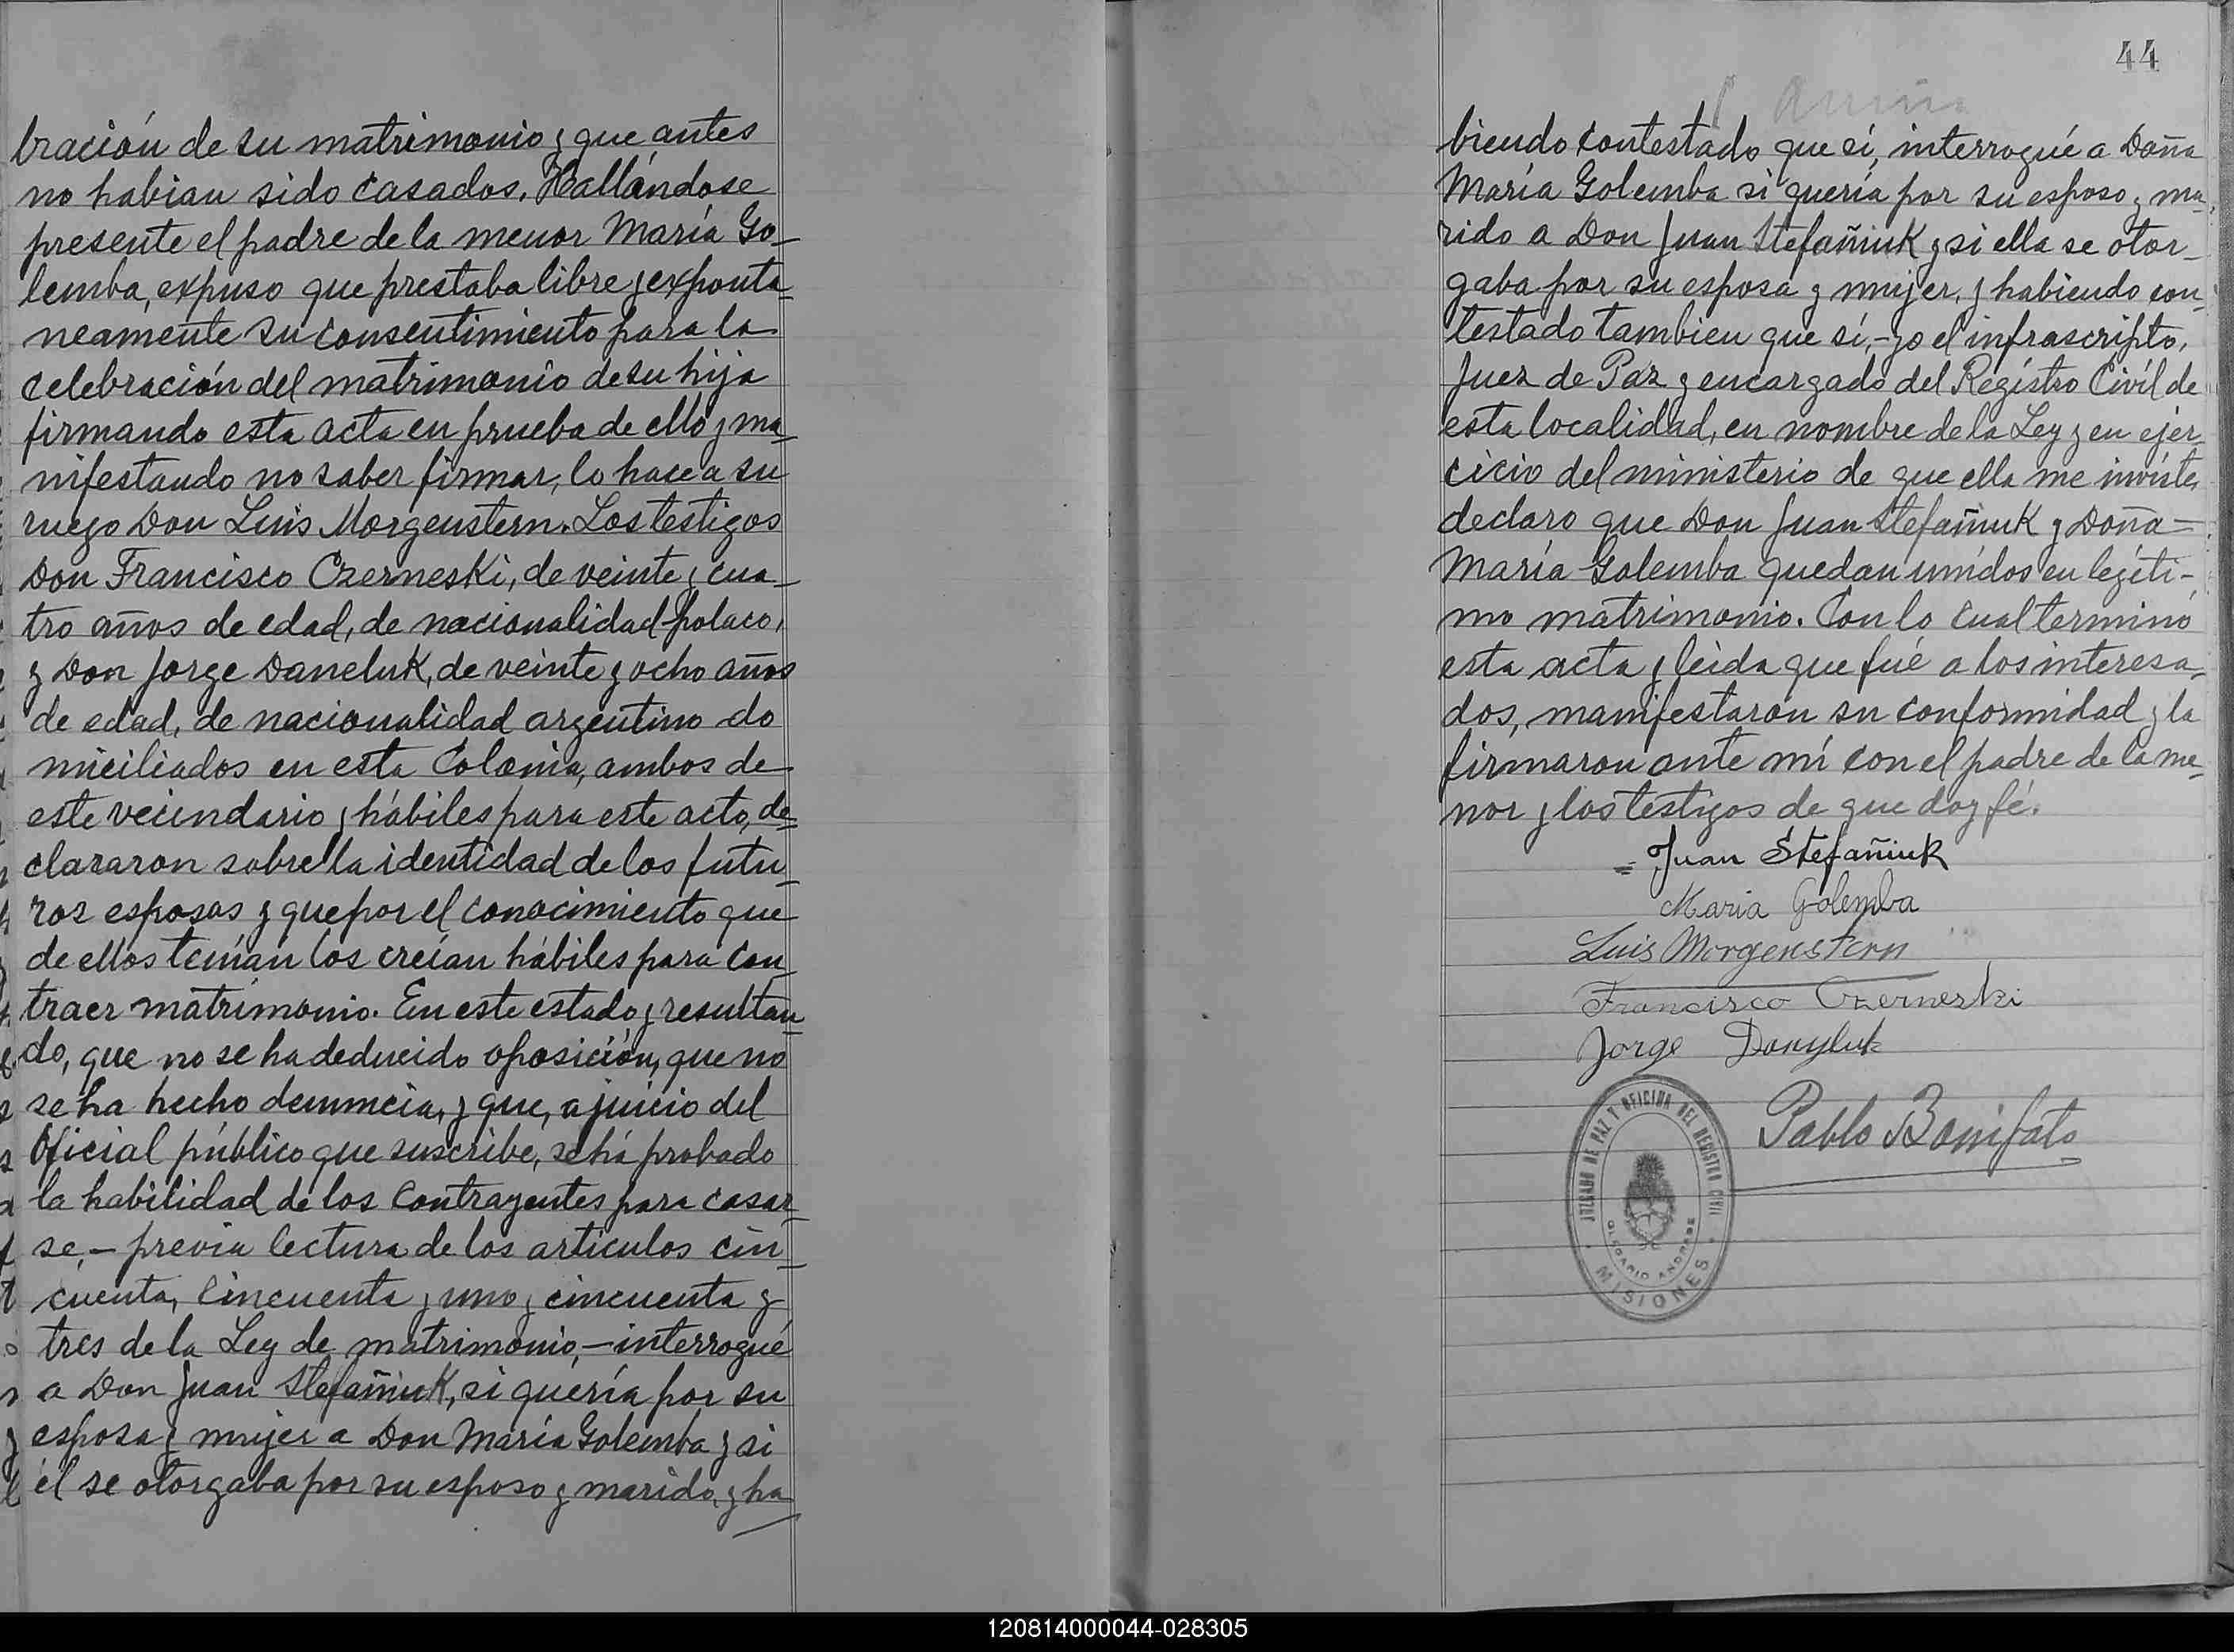 bración de su matrimonio y que antes
no habian sido casados. Hallándose
presente el padre de la menor María Go-
lemba, expuso que prestaba libre y exponta-
neamente su consentimiento para la
celebración del matrimonio de su hija
firmando esta acta en prueba de ello y ma-
nifestando no saber firmar, lo hace a su
ruego Don Luis Morgenstern. Los testigos
Don Francisco Czerneski, de veinte y cua-
tro años de edad, de nacionalidad polaco,
y Don Jorge Daneluk, de veinte y ocho años
de edad, de nacionalidad argentino do
miciliados en esta Colonia, ambos de
este vecindario y hábiles para este acto, de-
clararon sobre la identidad de los futu-
ros esposos y que por el conocimiento que
de ellos tenían los creían hábiles para con-
traer matrimonio. En este estado y resultan-
do, que no se ha deducido oposición, que no
se ha hecho denuncia, y que, a juicio del
Oficial público que suscribe, se há probado
la habilidad de los contrayentes para casar-
se,- previa lectura de los artículos cin-
cuenta, cincuenta y uno y cincuenta y
tres de la Ley de matrimonio,- interrogué
a Don Juan Stefañiuk, si quería por su
esposa y mujer a Don María Golemba y si
él se otorgaba por su esposo y marido, y ha
44
biendo contestado que sí, interrogué a Doña
María Golemba si quería por su esposo y ma-
rido a Don Juan Stefañiuk y si ella se otor-
gaba por su esposa y mujer, y habiendo con-
testado tambien que sí,- yo el infrascripto,
Juez de Paz y encargado del Registro Civil de
esta localidad, en nombre de la Ley y en ejer-
cicio del ministerio de que ella me inviste,
declaro que Don Juan Stefañiuk y Doña=
María Golemba quedan unidos en legíti-
mo matrimonio. Con lo cual terminó
esta acta y leída que fué a los interesa-
dos, manifestaron su conformidad y la
firmaron ante mí con el padre de la me-
nor y los testigos de que doy fé.
= Juan Stefañiuk
Maria Golemba
Luis Morgenstern
Francisco Czerneski
Jorge Danyluk
Pablo Bonifato
JUZGADO DE PAZ Y OFICINA DEL REGISTRO CIVIL
OLEGARIO ANDRADE
MISIONES
120814000044-028305